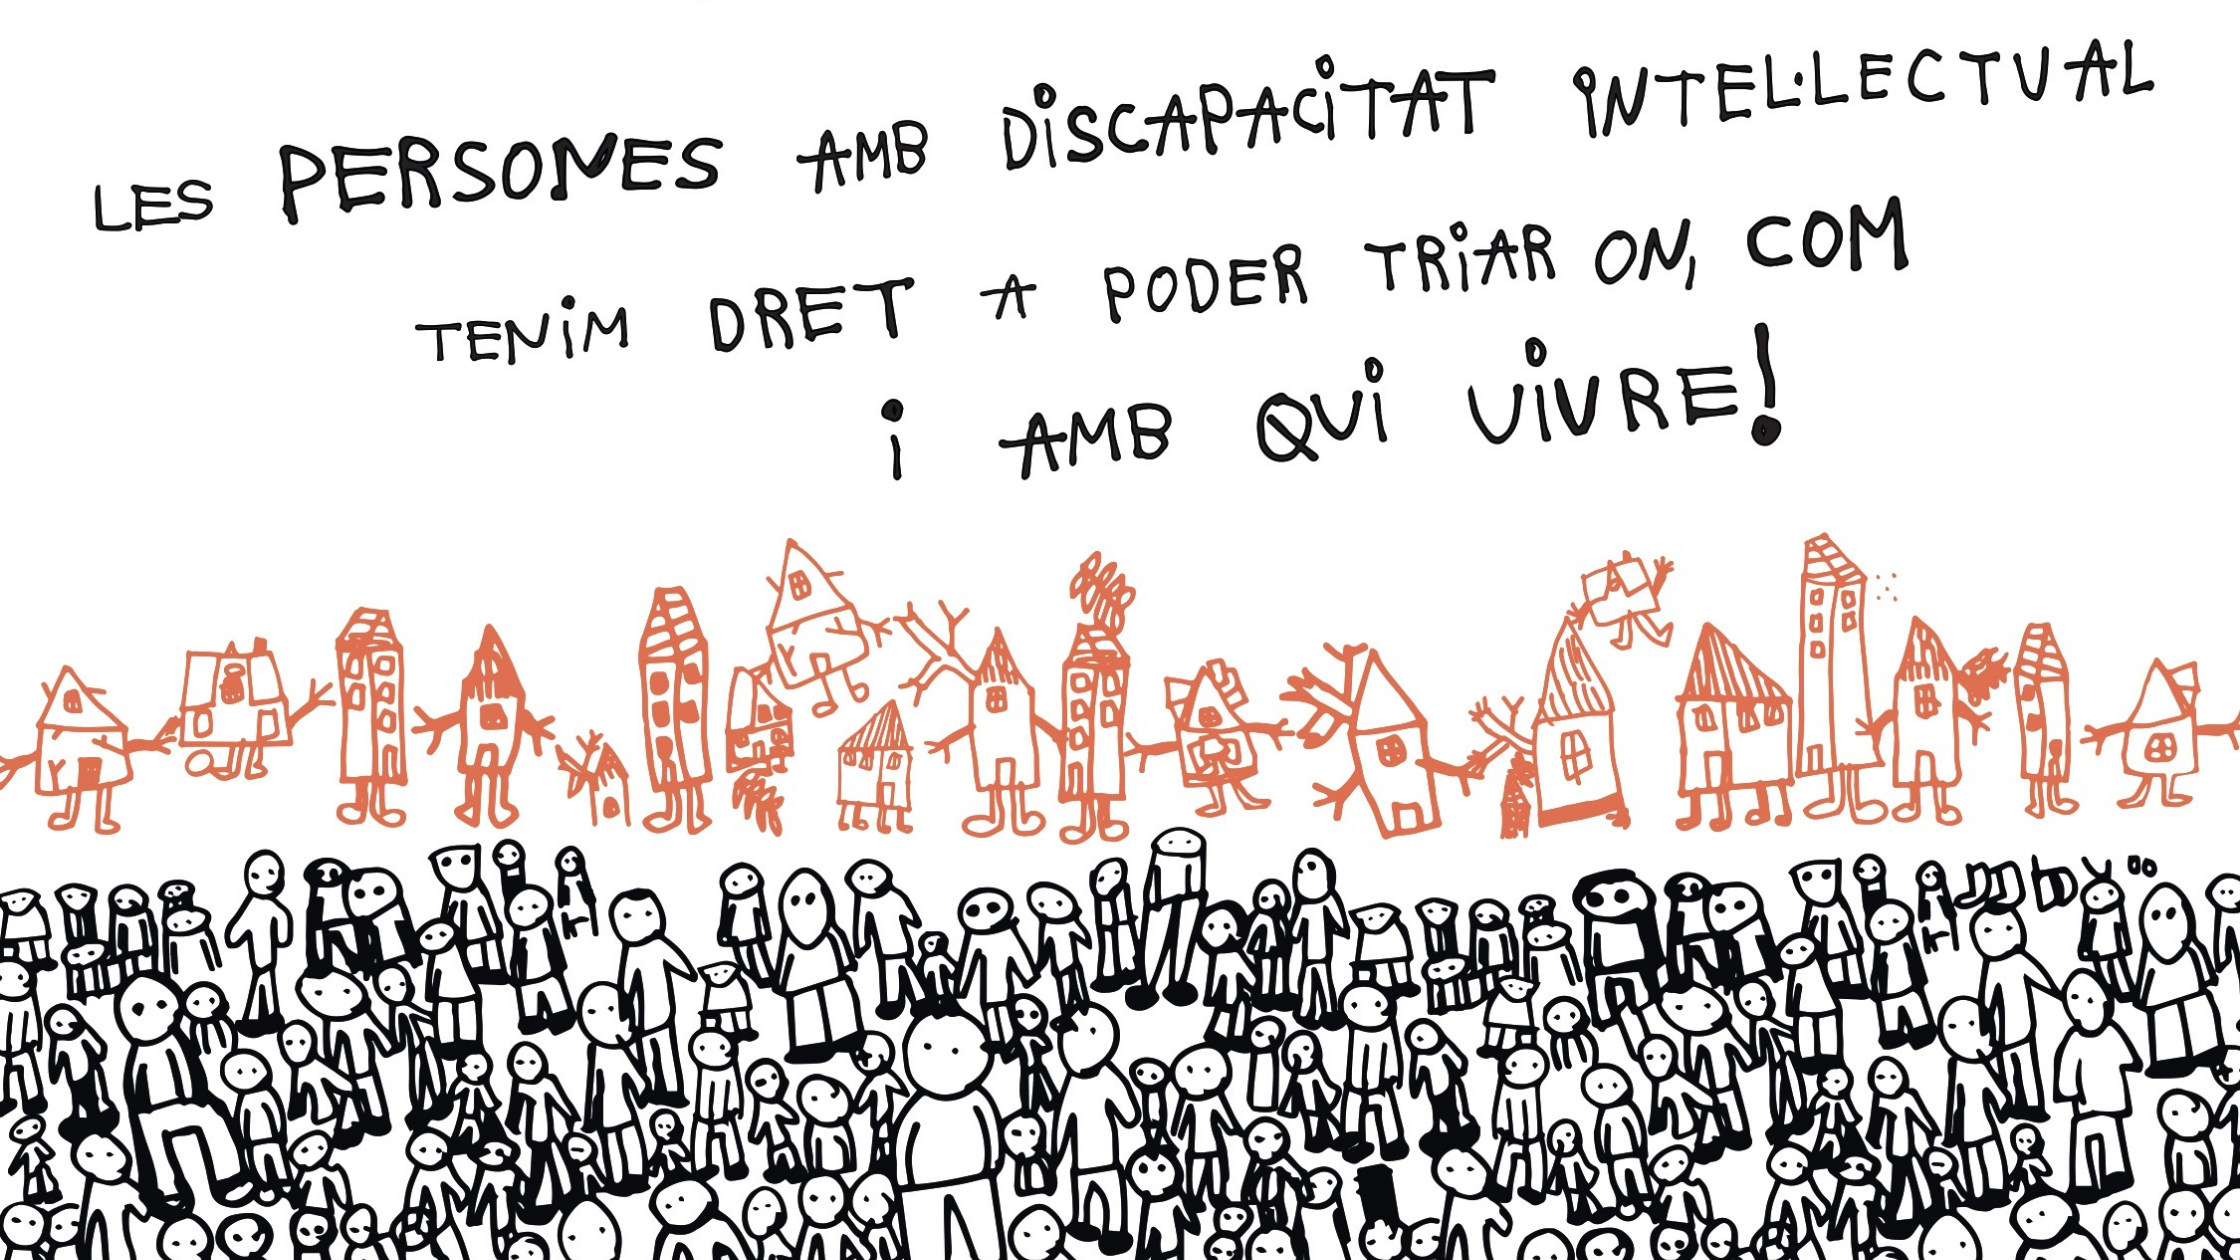 LES PERSONES AMB DiSCAPACiTAT iNTEL·LECTUAL
TENiM DRET A PODER TRiAR ON, COM
i AMB QUi ViVRE!